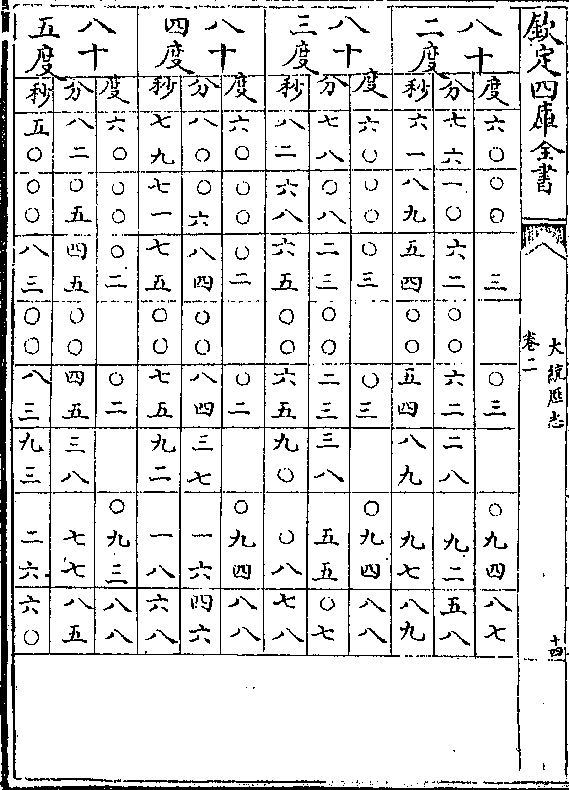 欽定四庫全書
大統厯志
卷二
十四
八十二度
度 六〇 〇〇 三 〇三 〇九四 八七
分 七六 一〇 六二 〇〇 六二 二八 九二 五八
秒 六一 八九 五四 〇〇 五四 八九 九七 八九
八十三度
度 六〇 〇〇 〇三 〇三 〇九四 八八
分 七八 〇八 二三 〇〇 二三 三八 五五 〇七
秒 八二 六八 六五 〇〇 六五 九〇 〇八 七八
八十四度
度 六〇 〇〇 〇二 〇二 〇九四 八八
分 八〇 〇六 八四 〇〇 八四 三七 一六 四六
秒 七九 七一 七五 〇〇 七五 九二 一八 六八
八十五度
度 六〇 〇〇 〇二 〇二 〇九三 八八
分 八二 〇五 四五 〇〇 四五 三八 七七 八五
秒 五〇 〇〇 八三 〇〇 八三 九三 二六 六〇